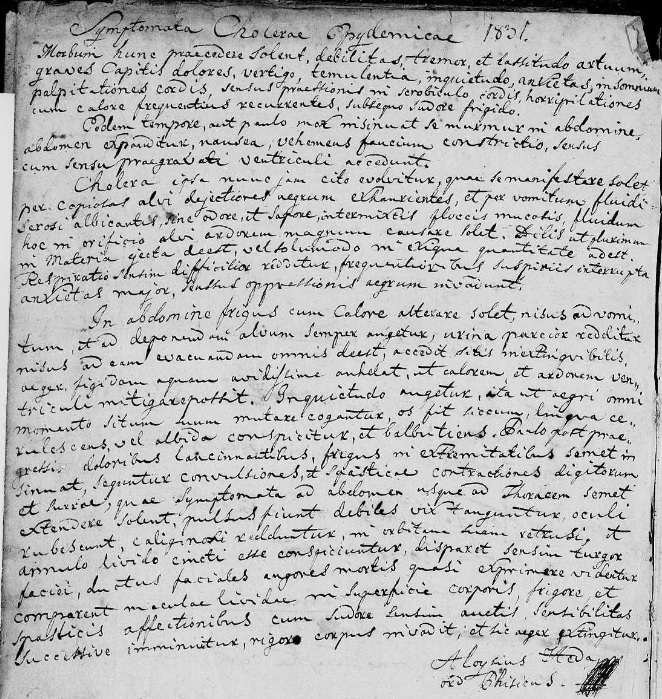 Symptomata Cholerae Epydemicae 1831.
Morbum hunc praecedere solent, debilitas, tremor, et lassitudo artuum,
graves Capitis dolores, vertigo, temulentia, inquietudo, anxietas, insomnium
palpitationes cordis, sensus praessionis in scrobiculo cordis, horripilationes
cum calore frequentius recurrentes, subsequo sudore frigido.
Eodem tempore, aut paulo mox insinuat se murmur in abdomine,
abdomen expanditur, nausea, vehemens faucium constrictio, sensus
cum sensu praegravati ventriculi accedunt.
Cholera ipsa nunc jam cito evolvitur, quae se manifestare solet
per copiosas alvi dejectiones aegrum exhaurientes, et per vomitum fluidi
serosi albicantis, sine odore, et sapore, intermixtis floccis mucosis, fluidum
hoc in orificio alvi ardorem magnum causare solet. Bilis ut plurimum
in materia ejecta deest, vel solummodo in exigua quantitate adest.
Respiratio sensim difficilior redditur, frequentioribus suspiriis interrupta
anxietas major, sensus oppressionis aegrum invadunt.
In abdomine frigus cum Calore alterare solet, nisus ad vomi-
tum, et ad deponendam alvum semper augetur, urina parcior redditur
nisus ad eam evacuandam omnis deest, accedit sitis inextinqvibilis,
aeger frigidam aquam avidissime anhelat, ut calorem, et ardorem ven-
triculi mitigare possit. Inquietudo augetur, ita ut aegri omni
momento situm suum mutare cogantur, os fit siccum, lingva ce-
rulescens, vel albida conspicitur, et balbutiens. Paulo post prae-
gressis doloribus lancinnantibus, frigus in extremitatibus semet in
sinuat, sequntur convulsiones, et spasticae contractiones digitorum
et surrae, quae symptomata ad abdomen usque ad Thoracem semet
extendere solent, pulsus fiunt debiles vix tanguntur, oculi
rubescunt, caliginosi redduntur, in orbitam suam retrusi, et
annulo livido cincti esse conspiciuntur, disparet sensim turgor
faciei, ductus faciales angores mortis quasi exprimere videntur
comparent maculae lividae in superficie corporis, frigore, et
spasticis affectionibus cum sudore sensim auctis, sensibilitas
successive imminuitur, rigore corpus invadit, et sic aeger extingitur.
Aloysius
ord Phisicus.